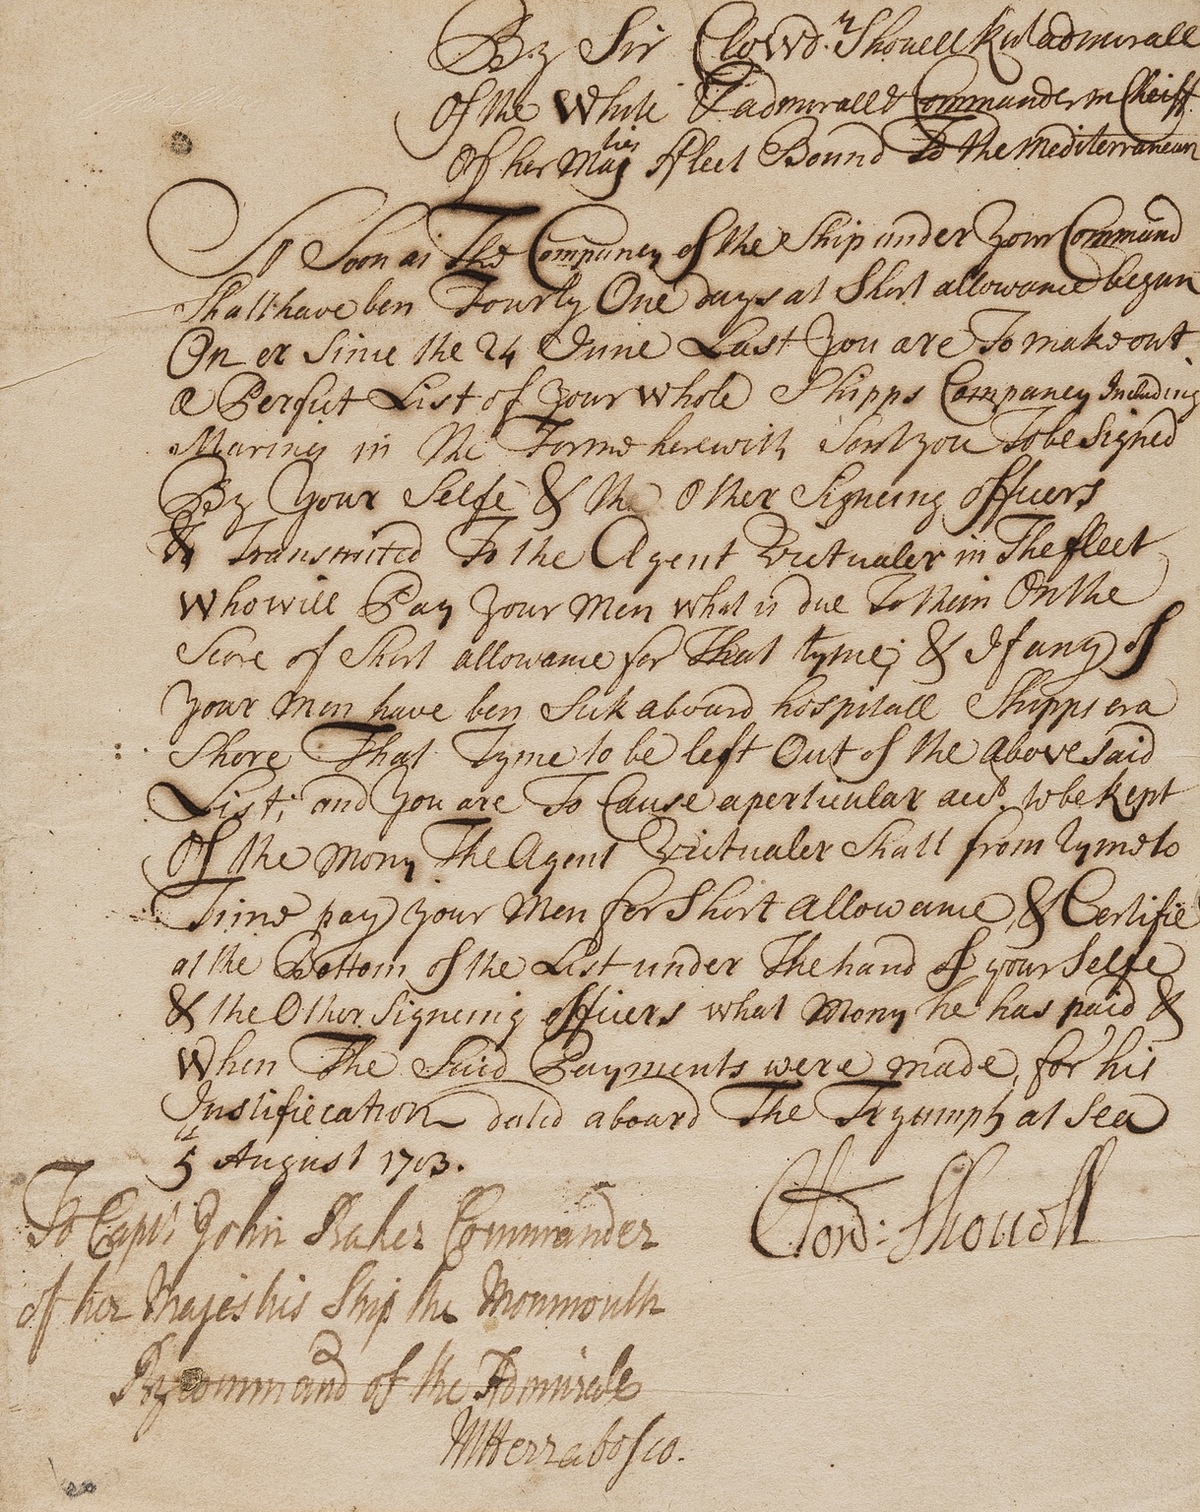 By Sir Clowd.r Shouell Knt admirall
Of the White & admirall & Commander in Cheiff
Of her Maj.ties ffleet Bound To the Mediterranean
So Soon as The Company of the Ship under Your Command
Shall have ben Fourty One days at Short allowance begun
On er Since the 24 June Last You are To make out
a Perfect List of Your whole Shipps Company Including
Marins in the Forme herewith Sent you To be Signed
By Your Selfe & the Other Signeing officers
& Transmited To the Agent Victualer in The fleet
Who will Pay Your Men what is due To them On the
Score of Short allowance for That tyme; & If any of
Your Men have ben Sick aboard hospitall Shipps or a
Shore That Tyme to be left Out of the above said
List; and You are To Cause a perticular acct. to be kept
Of the Mony The Agent Victualer Shall from tyme to
Time pay your Men for Short Allowance, & Certifie
at the Bottom of the List under The hand of your Selfe
& the Other Signeing officers what Mony he has paid &
When The Said Payments were made, for his
Justifiecation dated aboard The Tryumph at Sea
5 August 1703.
Clowd: Shovell
To Capt: John Baker Commander
of her Majestis Ship the Monmouth
By command of the Admirale
MHerrabosco.